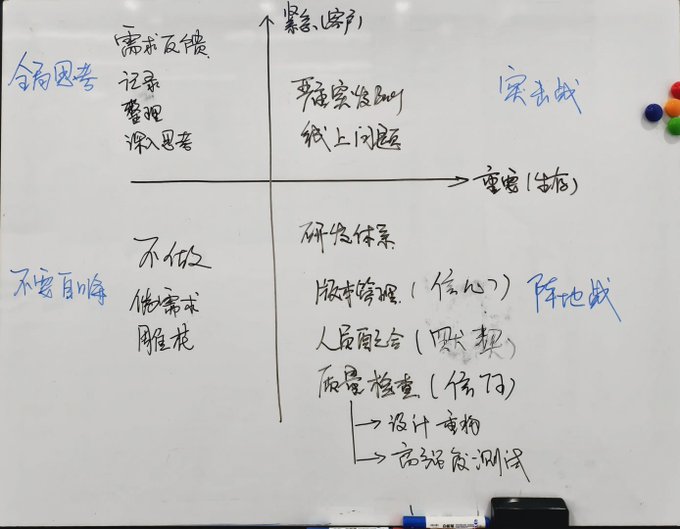 紧急(客户)
需求反馈
全局思考
记录
整理
深入思考
严重突发Bug
线上问题
突击战
重要(生存)
不做
伪需求
雕花
不要自嗨
研发体系
版本管理(信心)
人员配合(默契)
质量检查(信心)
阵地战
→设计重构
→高强度测试